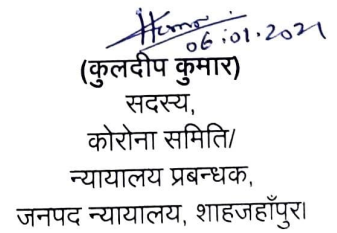 06.01.2021
(कुलदीप कुमार)
सदस्य,
कोरोना समिति/
न्यायालय प्रबन्धक,
जनपद न्यायालय, शाहजहाँपुर।